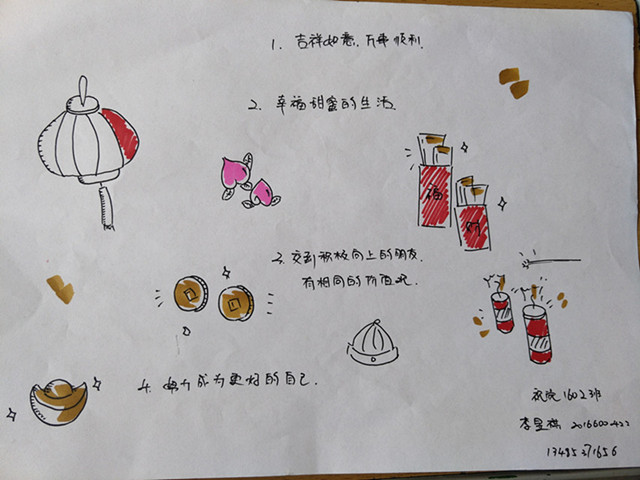 1. 吉祥如意,万事顺利.
2. 幸福甜蜜的生活.
福
财
3. 交到积极向上的朋友.
有相同的价值观.
4. 努力成为更好的自己.
1602班
2016600422
13485371656